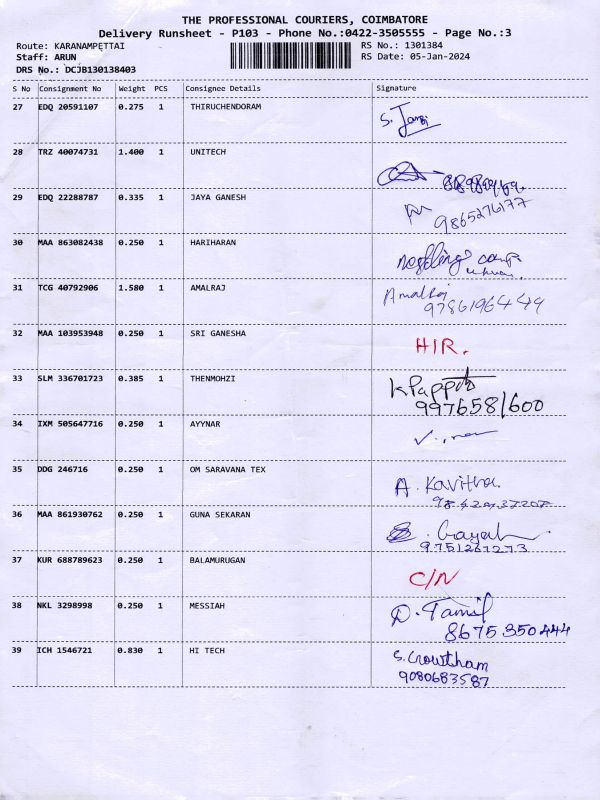 THE PROFESSIONAL COURIERS, COIMBATORE
Delivery Runsheet - P103 - Phone No.:0422-3505555 - Page No.:3
Route: KARANAMPETTAI RS No.: 1301384
Staff: ARUN RS Date: 05-Jan-2024
DRS No.: DCJB130138403
S No Consignment No Weight PCS Consignee Details Signature
27 EDQ 20591107 0.275 1 THIRUCHENDORAM
28 TRZ 40074731 1.400 1 UNITECH
29 EDQ 22288787 0.335 1 JAYA GANESH
9865276177
30 MAA 863082438 0.250 1 HARIHARAN
31 TCG 40792906 1.580 1 AMALRAJ Amalraj
9786196449
32 MAA 103953948 0.250 1 SRI GANESHA
HIR.
33 SLM 336701723 0.385 1 THENMOHZI
9976581600
34 IXM 505647716 0.250 1 AYYNAR
35 DDG 246716 0.250 1 OM SARAVANA TEX
A. Kavitha
36 MAA 861930762 0.250 1 GUNA SEKARAN
9751267273
37 KUR 688789623 0.250 1 BALAMURUGAN
C/N
38 NKL 3298998 0.250 1 MESSIAH D. Tamil
8675350444
39 ICH 1546721 0.830 1 HI TECH S. Gowtham
9080683587